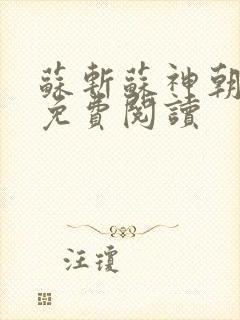 蘇斬蘇神朝
免費閱讀
汪瓊